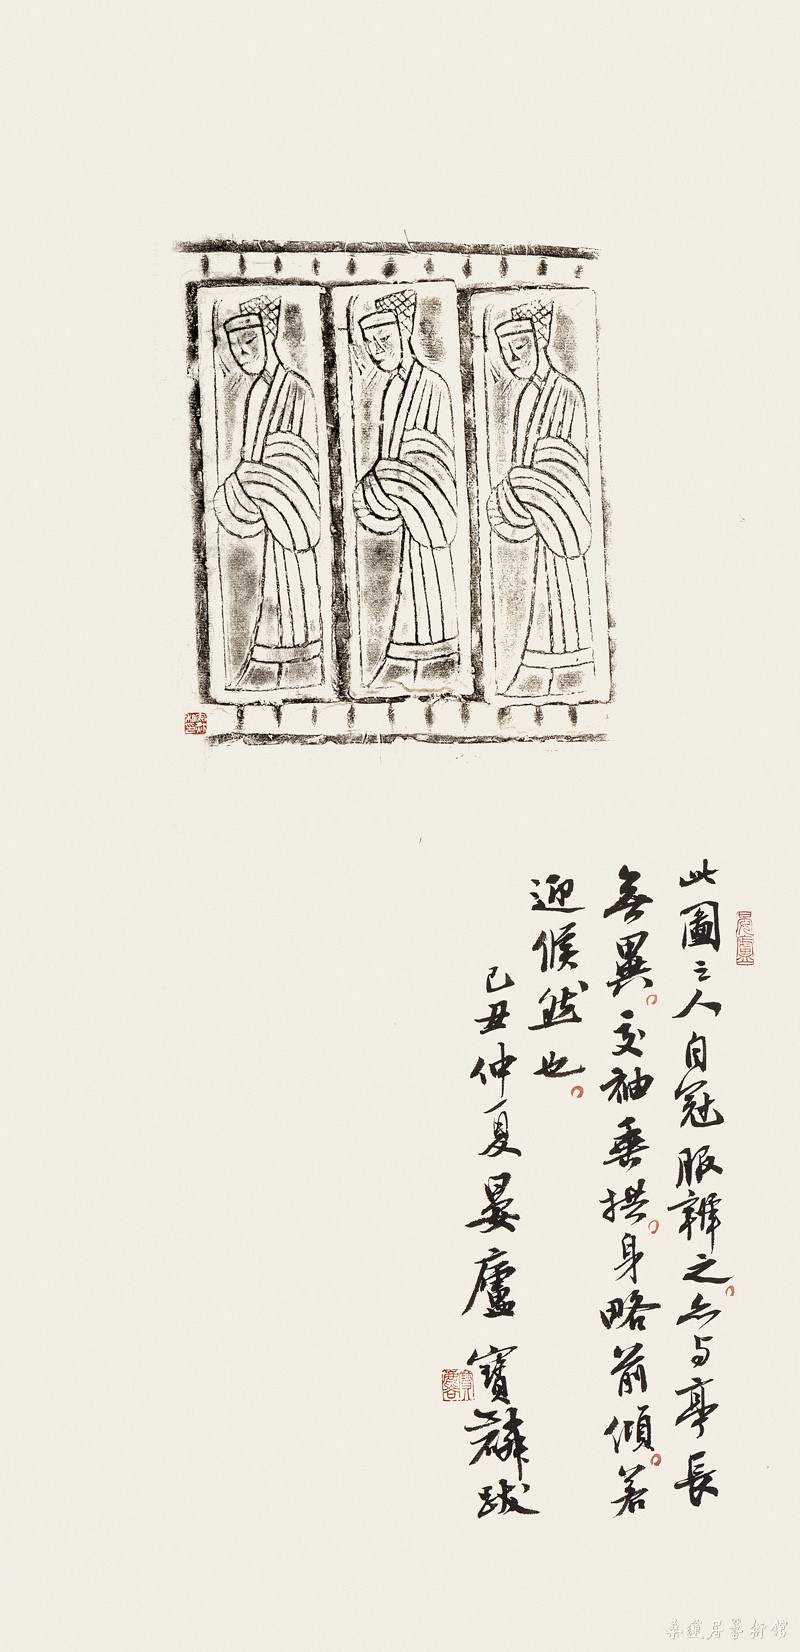 晏廬
此圖之人自冠服辨之。亦与亭長
無異。交袖垂拱。身略前傾。若
迎候然也。
己丑仲夏晏廬寶麟跋
桑蓮居藝術館